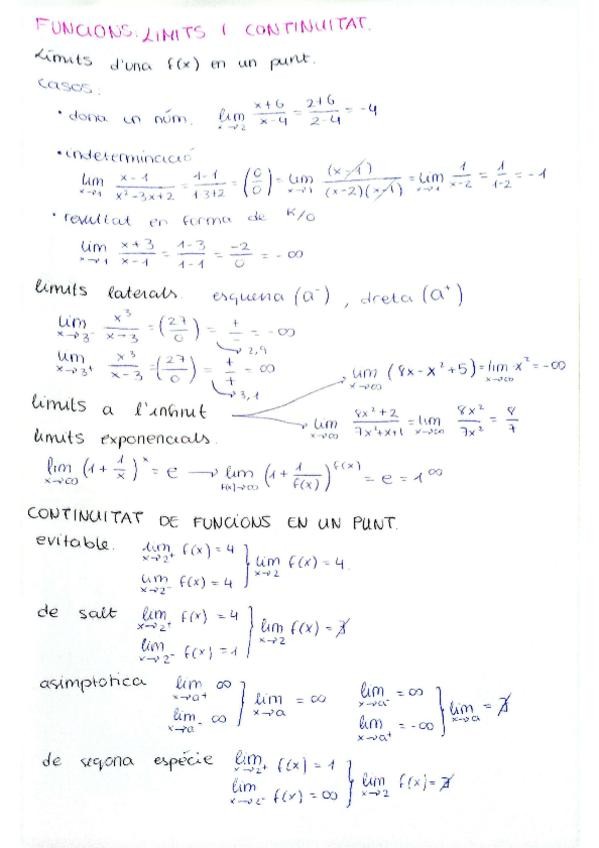 FUNCIONS: LIMITS I CONTINUITAT.
Límits d'una f(x) en un punt.
Casos:
• dona un núm. lim x→2 x+6/x-4 = 2+6/2-4 = -4
• indeterminació
lim x→1 x-1/x²-3x+2 = 1-1/13+2 = (0/0) = lim x→1 (x-1)/(x-2)(x-1) = lim x→1 1/x-2 = 1/1-2 = -1
• resultat en forma de K/0
lim x→1 x+3/x-1 = 1-3/1-1 = -2/0 = -∞
límits laterals. esquerra (a⁻), dreta (a⁺)
lim x→3⁻ x³/x-3 = (27/0) = +/- = -∞
2,9
lim x→3⁺ x³/x-3 = (27/0) = +/+ = -∞
3,1
límits a l'infinit
lim x→∞ (8x-x²+5) = lim x→∞ -x² = -∞
lim x→∞ 8x²+2/7x²+x+1 = lim x→∞ 8x²/7x² = 8/7
límits exponencials.
lim x→∞ (1+1/x)ˣ = e → lim f(x)→∞ (1+1/f(x))^f(x) = e = 1^∞
CONTINUITAT DE FUNCIONS EN UN PUNT.
evitable. lim x→2⁺ f(x) = 4
lim x→2⁻ f(x) = 4 } lim x→2 f(x) = 4.
de salt lim x→2⁺ f(x) = 4
lim x→2⁻ f(x) = 1 } lim x→2 f(x) = ∄
asimptotica lim x→a⁺ ∞
lim x→a⁻ ∞ } lim x→a = ∞
lim x→a⁻ = ∞
lim x→a⁺ = -∞ } lim x→a = ∄
de segona espécie lim x→2⁺ f(x) = 1
lim x→2⁻ f(x) = ∞ } lim x→2 f(x) = ∄